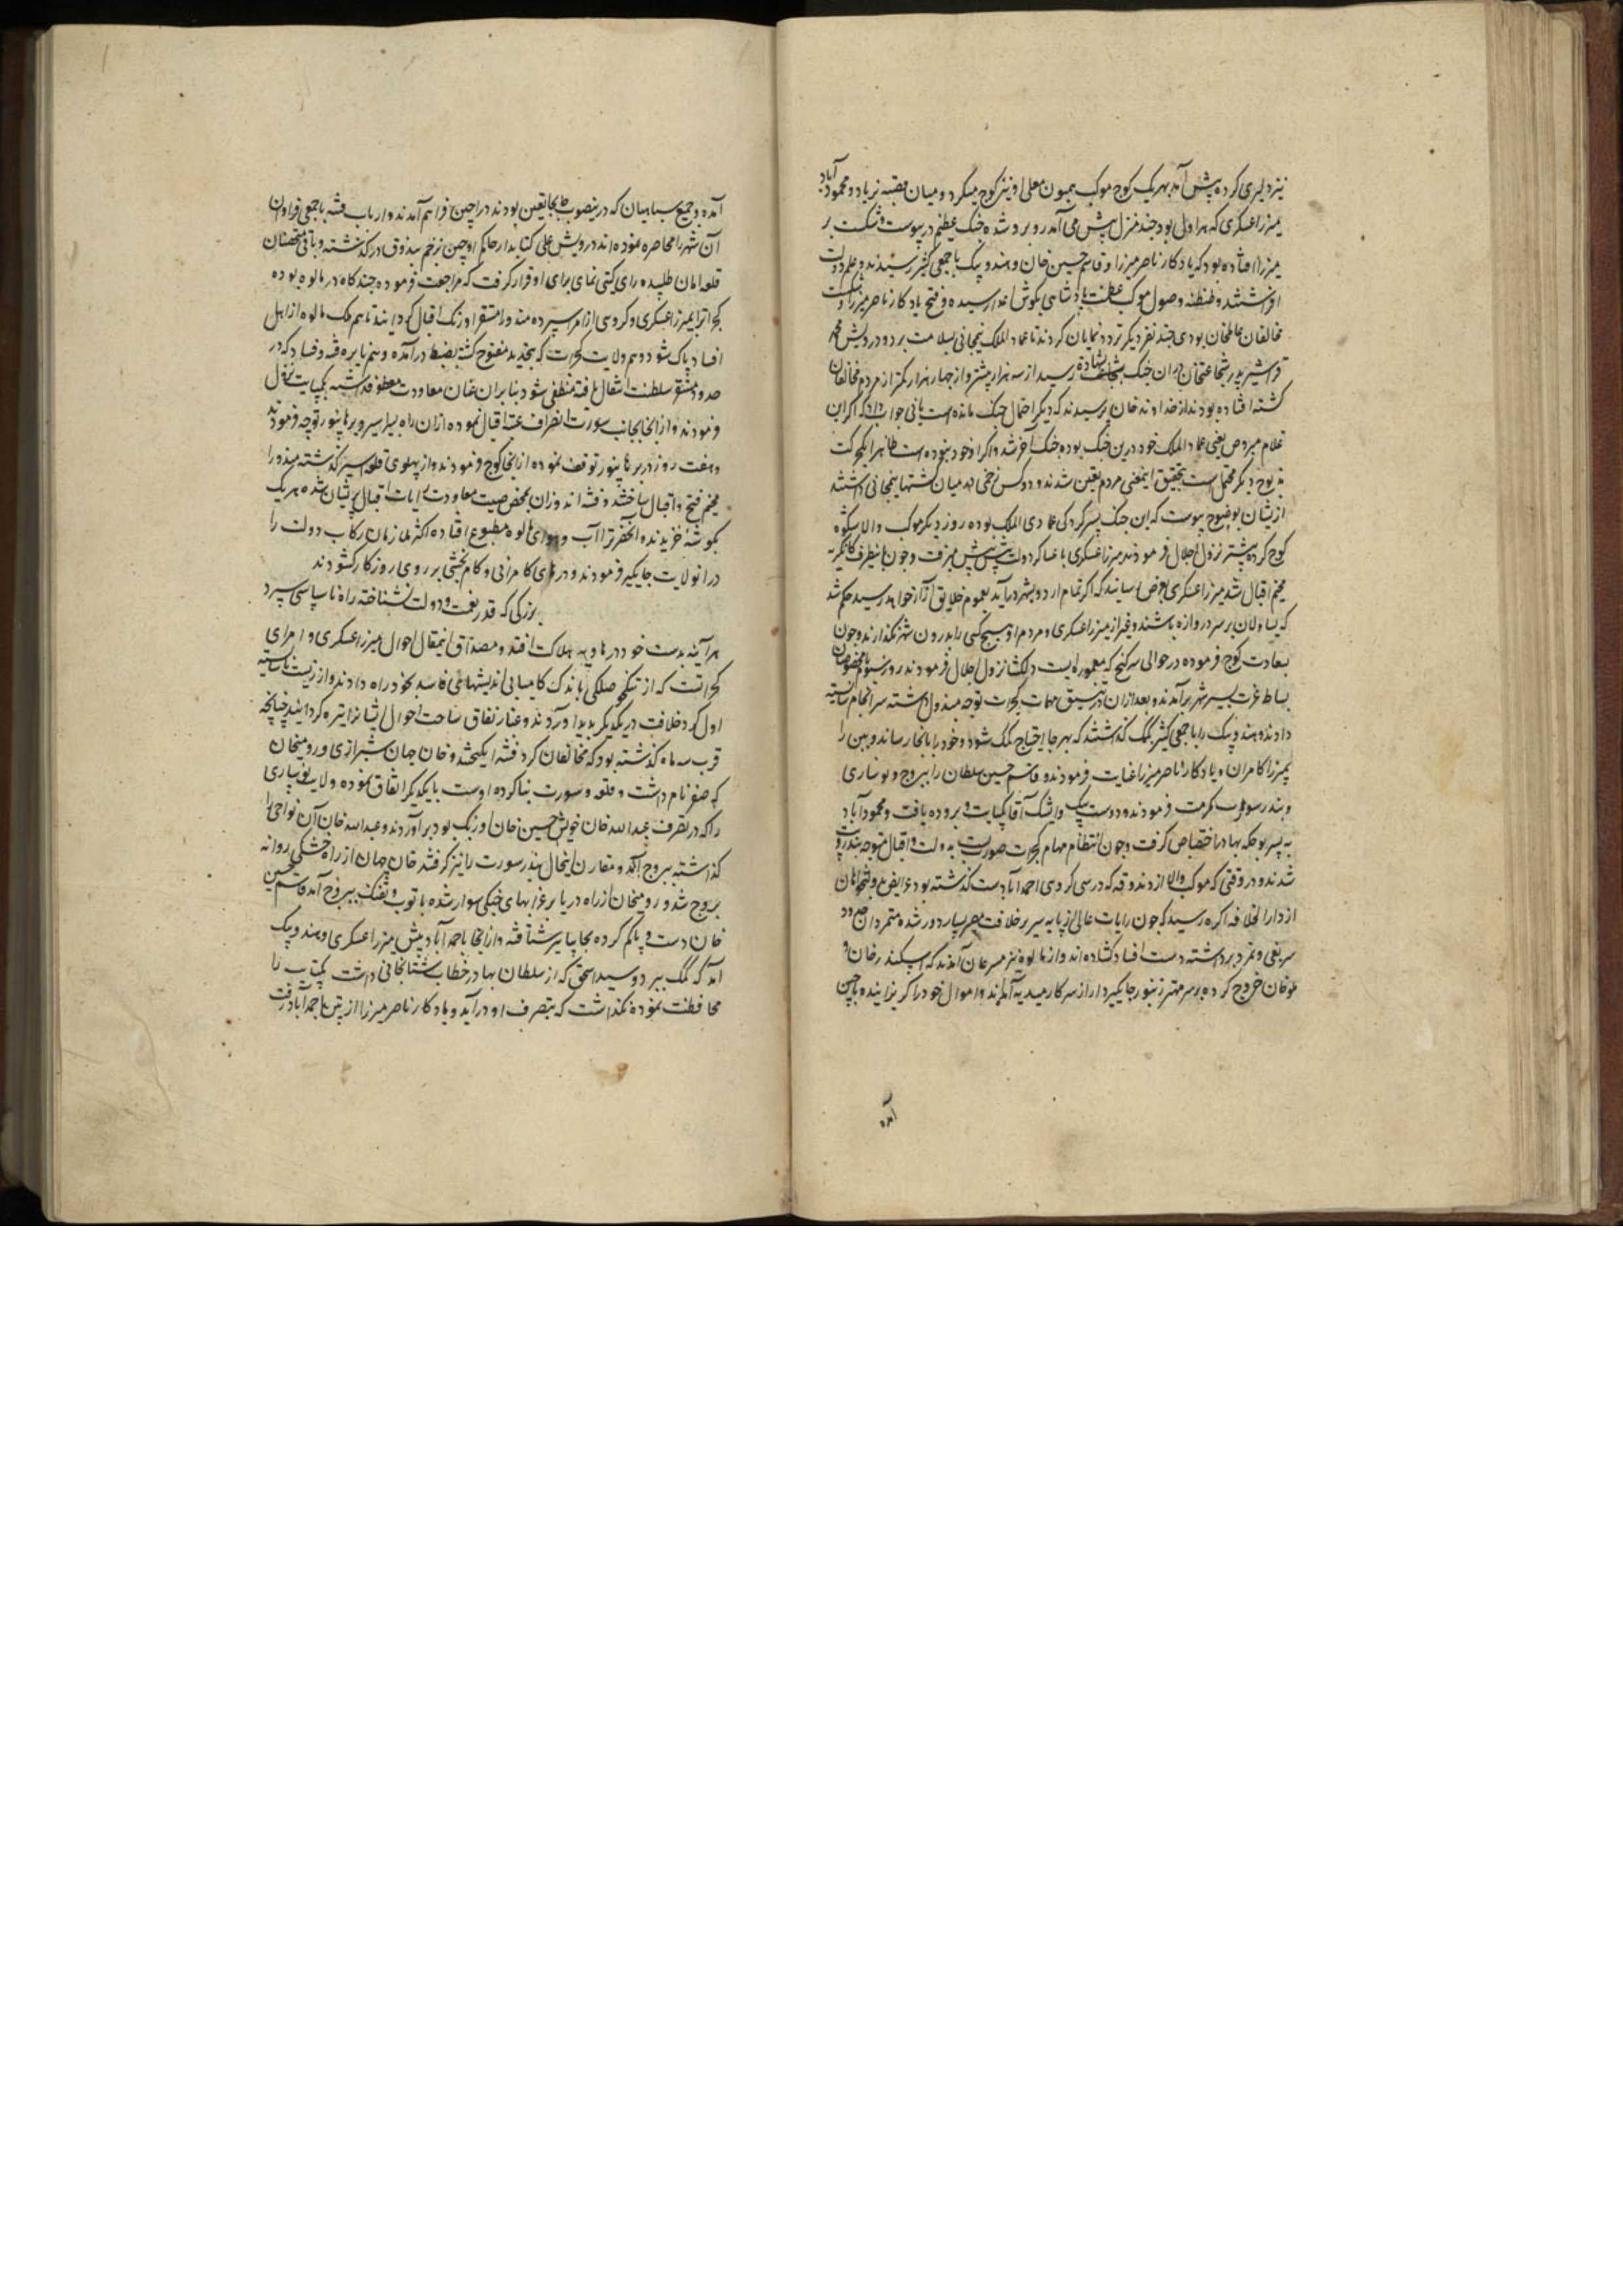 نیز دلیری کرده پیش آمد بهر یک کوچ موکب همیون معلی او نیز کوچ میکرد و میان قصبه نریاد و محمودآباد
میرزا عسکری که هراول بود چند منزل پیش می آمد روبرو شده جنک عظیم در پیوست و شکست بر
میرزا افتاده بود که یادکار ناصر میرزا و قاسم حسین خان و هندو بیک با جمعی کثیر رسیدند و علم دولت
افراشتند و طنطنه وصول موکب عظمت پادشاهی بکوش اعدا رسیده و فتح یادکار ناصر میرزا
مخالفان عالمخان لودی چند نفر دیکر تردد نمایان کردند تا عماد الملک نیمجانی بسلامت برد و درویش محمد
قراشیر پدر شجاعتخان دران جنک بشهادة رسید از سه هزار بیشتر و از چهار هزار کمتر از مردم مخالفان
کشته افتاده بودند از خداوند خان پرسیدند که دیکر احتمال جنک مانده است یا نی جواب داد که اگر آن
غلام مبروص یعنی عماد الملک خود درین جنک بوده جنک آخر شد و اگر او خود نبوده است ظاهرا که حرکت
مذبوح دیکر محتمل است بتحقیق اینمعنی مردم تعین شدند و دو کس زخمی در میان کشتها نیمجانی داشتند
ازیشان بوضوح پیوست که این جنک بسرکردکی عمادی الملک بوده روز دیکر موکب والا بشکوه
کوچ کرده پیشتر نزول اجلال فرمودند میرزا عسکری با عساکر دولت پیش پیش میرفت و چون بانیطرف کانکریه
مخیم اقبال شد میرزا عسکری بعرض رسانید که اگر تمام اردو بشهر درآید بعموم خلایق آزار خواهد رسید حکم شد
که یساولان بر سر دروازه باشند و غیر از میرزا عسکری و مردم او هیچ کس را بدرون شهر نکذارند و چون
بسعادت کوچ فرموده در حوالی سرکنج که معموره ایست دلکشا نزول اجلال فرمودند روز سیوم با مخصوصان
بساط عزت بسیر شهر برآمدند و بعد از ان در تنسیق مهمات کجرات توجه مبذول داشته سرانجام شایسته
دادند و هندو بیک را با جمعی کثیر بکمک کذاشتند که بهر جا احتیاج کمک شود خود را بانجا رساند و پتن را
بمیرزا کامران و یادکار ناصر میرزا عنایت فرمودند و قاسم حسین سلطان را ببروج و نوساری
و بندر سورت مکرمت فرمودند و دوست بیک و ایشک آقا کمبایت و بروده یافت و محمودآباد
به میر بوجکه بهادر اختصاص کرفت و چون انتظام مهام کجرات صورت بست بدولت و اقبال متوجه بندر دیو
شدند و در وقتی که موکب والا از دندوقه که در سی کروهی احمدآباد است کذشته بود عرایض دولتخواهان
از دارالخلافه اکره رسید که چون رایات عالی از پایه سریر خلافت مصیر بسیار دور شده متمردان هر دو
سر بغی و تمرد برداشته دست افساد کشاده اند و از مالوه نیز مسرعان آمدند که سکندر خان و
ملوخان خروج کرده بر سر مهتر زنبور جاکیردار از سرکار هندیه آمدند و اموال خود را کریزانیده باوجین
آمده
آمده و جمیع سپاهیان که درینصوب جابجا تعین بودند در اوجین فراهم آمدند و ارباب فتنه با جمعی فراوان
آن شهر را محاصره نموده اند درویش علی کتابدار حاکم اوجین بزخم بندوق درکذشته و باقی متحصنان
قلعه امان طلبیده رای کیتی نمای برای او قرار کرفت که مراجعت فرموده چند کاه در مالوه بوده
کجرات را بمیرزا عسکری و کروهی از امرا سپرده مندو را مستقر اورنک اقبال کردانند تا هم ملک مالوه از اهل
افساد پاک شود و هم ولایت کجرات که بتجدید مفتوح کشته بضبط درآمده و هم نایره فتنه و فساد که در
حدود مستقر سلطنت اشتعال یافته منطفی شود بنابران عنان معاودت معطوف داشته بکمبایت نزول
فرمودند و از انجا بجانب سورت انصراف عنان اقبال نموده ازان راه باسیر و برهانپور توجه فرمودند
و هفت روز در برهانپور توقف نموده از انجا کوچ فرمودند و از پهلوی قلعه اسیر کذشته مندو را
مخیم فتح و اقبال ساختند و فتنه اندوزان بمحض صیت معاودت رایات اقبال پریشان شده هر یک
بکوشه خزیدند و انحضرترا آب و هوای مالوه مطبوع افتاده اکثر ملازمان رکاب دولت را
درانولایت جاکیر فرمودند و درهای کامرانی و کام بخشی بر روی روزکار کشودند
بزرکی که قدر نعمت و دولت نشناخته راه ناسپاسی سپرد
هر آینه بدست خود در هاویه هلاکت افتد و مصداق اینمقال احوال میرزا عسکری و امرای
کجراتست که از تنک حوصلکی باندک کامیابی اندیشهای فاسد بخود راه دادند و از زیست ناشایسته
اول کرد خلافت در یکدیکر پدید آوردند و غبار نفاق ساحت احوال ایشانرا تیره کردانید چنانچه
قرب سه ماه کذشته بود که مخالفان کرد فتنه انکیختند و خان جهان شیرازی و رومیخان
که صفر نام داشت و قلعه سورت بنا کرده اوست با یکدیکر اتفاق نموده ولایت نوساری
را که در تصرف عبدالله خان خویش حسین خان اوزبک بود برآوردند و عبدالله خان آن نواحی را
کذاشته ببروج آمد و مقارن اینحال بندر سورت را نیز کرفتند خان جهان از راه خشکی روانه
بروج شد و رومیخان از راه دریا بر غرابهای جنکی سوار شده با توب و تفنک ببروج آمد قاسم حسین
خان دست و پا کم کرده بجاپانیر شتافته و از انجا باحمدآباد پیش میرزا عسکری و هندو بیک
آمد که کمک ببرد و سید اسحق که از سلطان بهادر خطاب شتابخانی داشت کمبایت را
محافظت نموده نکذاشت که بتصرف او درآید و یادکار ناصر میرزا از پتن باحمدآباد رفت